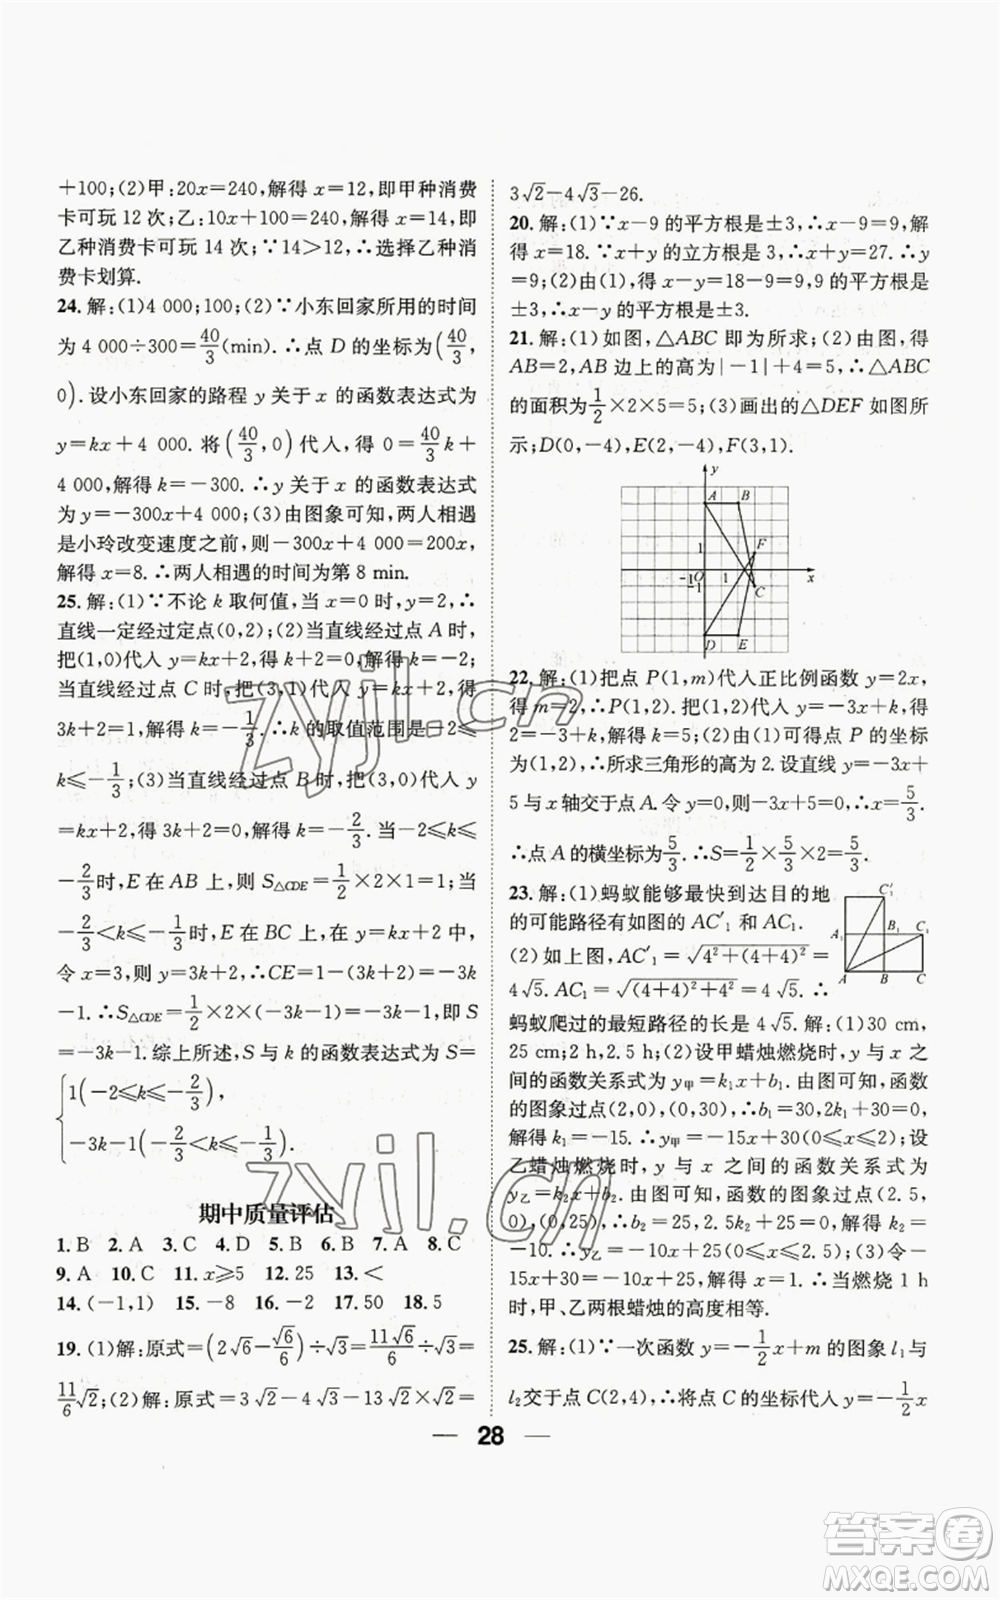 ＋100;(2)甲:20x＝240,解得 x＝12,即甲种消费
卡可玩 12 次;乙:10x＋100＝240,解得 x＝14,即
乙种消费卡可玩 14 次;∵14＞12,∴选择乙种消
费卡划算.
24.解:(1)4 000;100;(2)∵小东回家所用的时间
为 4 000÷300＝40/3(min).∴点 D 的坐标为(40/3,
0).设小东回家的路程 y 关于 x 的函数表达式为
y＝kx＋4 000. 将(40/3,0)代人,得 0＝40/3 k＋
4 000,解得 k＝－300.∴y 关于 x 的函数表达式
为 y＝－300x＋4 000;(3)由图象可知,两人相遇
是小玲改变速度之前,则－300x＋4 000＝200x,
解得 x＝8.∴两人相遇的时间为第 8 min.
25.解:(1)∵不论 k 取何值,当 x＝0 时,y＝2,∴
直线一定经过定点(0,2);(2)当直线经过点 A 时,
把(1,0)代人 y＝kx＋2,得 k＋2＝0.解得 k＝－2;
当直线经过点 C 时,把(3,1)代人 y＝kx＋2,得
3k＋2＝1,解得 k＝－1/3.∴k 的取值范围是－2≤
k≤－1/3;(3)当直线经过点 B 时,把(3,0)代人 y
＝kx＋2,得 3k＋2＝0,解得 k＝－2/3.当－2≤k≤
－2/3时,E 在 AB 上,则 S△CDE＝1/2×2×1＝1;当
－2/3＜k≤－1/3时,E 在 BC 上,在 y＝kx＋2 中,
令 x＝3,则 y＝3k＋2,∴CE＝1－(3k＋2)＝－3k
－1.∴S△CDE＝1/2×2×(－3k－1)＝－3k－1,即 S
＝－3k－1.综上所述,S 与 k 的函数表达式为 S＝
{1(－2≤k≤－2/3),
－3k－1(－2/3＜k≤－1/3).
期中质量评估
1.B 2.A 3.C 4.D 5.B 6.B 7.A 8.C
9.A 10.C 11.x≥5 12.25 13.＜
14.(－1,1) 15.－8 16.－2 17.50 18.5
19.(1)解:原式＝(2√6－√6/6)÷√3＝11√6/6÷√3＝
11/6√2;(2)解:原式＝3√2－4√3－13√2×√2＝
3√2－4√3－26.
20.解:(1)∵x－9 的平方根是±3,∴x－9＝9,解
得 x＝18.∵x＋y 的立方根是 3,∴x＋y＝27.∴y
＝9;(2)由(1),得 x－y＝18－9＝9,9 的平方根是
±3,∴x－y 的平方根是±3.
21.解:(1)如图,△ABC 即为所求;(2)由图,得
AB＝2,AB 边上的高为|－1|＋4＝5,∴△ABC
的面积为1/2×2×5＝5;(3)画出的△DEF 如图所
示;D(0,－4),E(2,－4),F(3,1).
y
A B
F
1
－1 O 1 x
－1 C
D E
22.解:(1)把点 P(1,m)代人正比例函数 y＝2x,
得 m＝2,∴P(1,2).把P(1,2)代入 y＝－3x＋k,得
2＝－3＋k,解得 k＝5;(2)由(1)可得点 P 的坐标
为(1,2),∴所求三角形的高为 2.设直线 y＝－3x＋
5 与 x 轴交于点 A.令 y＝0,则－3x＋5＝0,∴x＝5/3.
∴点 A 的横坐标为5/3.∴S＝1/2×5/3×2＝5/3.
23.解:(1)蚂蚁能够最快到达目的地
的可能路径有如图的 AC′₁ 和 AC₁.
(2)如上图,AC′₁＝√(4²＋(4＋4)²)＝
4√5.AC₁＝√((4＋4)²＋4²)＝4√5.∴
C′₁
A₁ B₁ C₁
A B C
蚂蚁爬过的最短路径的长是 4√5.解:(1)30 cm,
25 cm;2 h,2.5 h;(2)设甲蜡烛燃烧时,y 与 x 之
间的函数关系式为 y甲＝k₁x＋b₁.由图可知,函数
的图象过点(2,0),(0,30),∴b₁＝30,2k₁＋30＝0.
解得 k₁＝－15.∴y甲＝－15x＋30(0≤x≤2);设
乙蜡烛燃烧时,y 与 x 之间的函数关系式为
y乙＝k₂x＋b₂.由图可知,函数的图象过点(2.5,
0),(0,25),∴b₂＝25,2.5k₂＋25＝0.解得 k₂＝
－10.∴y乙＝－10x＋25(0≤x≤2.5);(3)令－
15x＋30＝－10x＋25,解得 x＝1.∴当燃烧 1 h
时,甲、乙两根蜡烛的高度相等.
25.解:(1)∵一次函数 y＝－1/2x＋m 的图象 l₁与
l₂交于点 C(2,4),∴将点 C 的坐标代人 y＝－1/2x
— 28 —
zyjl.cn
zyjl.cn
答案卷
MXQE.COM